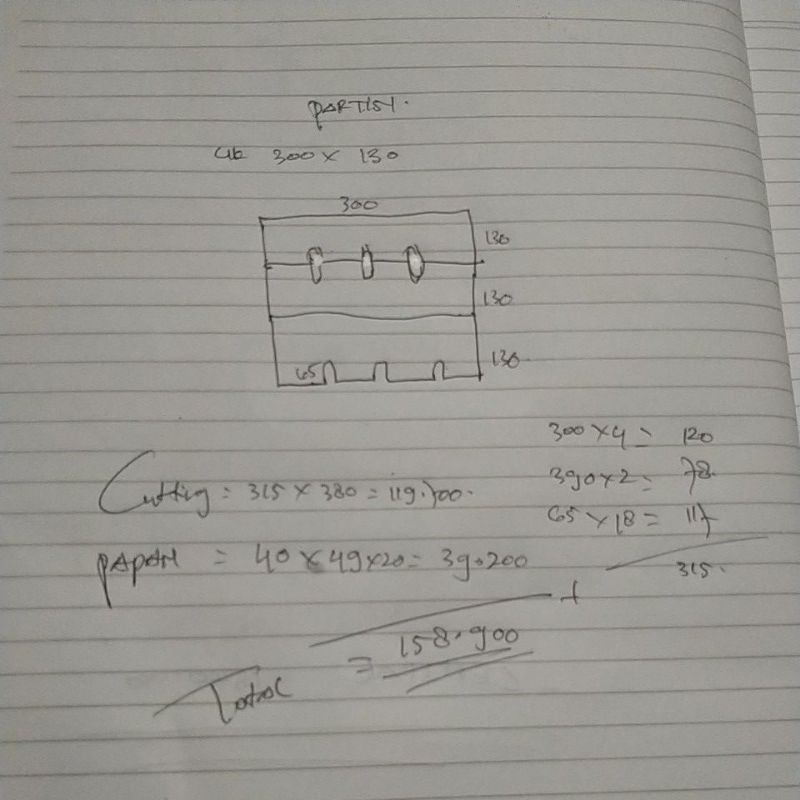 PARTISI.
Uk 300 x 130
300
130
130
65
130
300 x 4 = 120
390 x 2 = 78.
65 x 18 = 117
315.
Cutting = 315 x 380 = 119.700.
PAPAN = 40 x 49 x 20 = 39.200
+
Total = 158.900